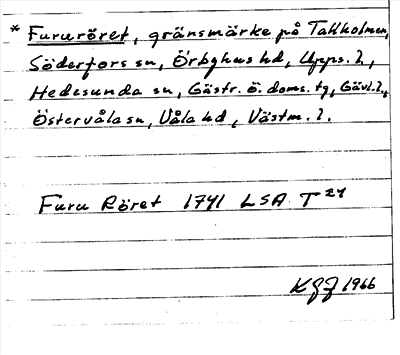 * Fururöret, gränsmärke på Takholmen,
Söderfors sn, Örbyhus hd, Upps. l.,
Hedesunda sn, Gästr. ö. doms. tg, Gävl. l.,
Östervåla sn, Våla hd, Västm. l.
Furu Röret 1741 LSA T 24
KGJ 1966